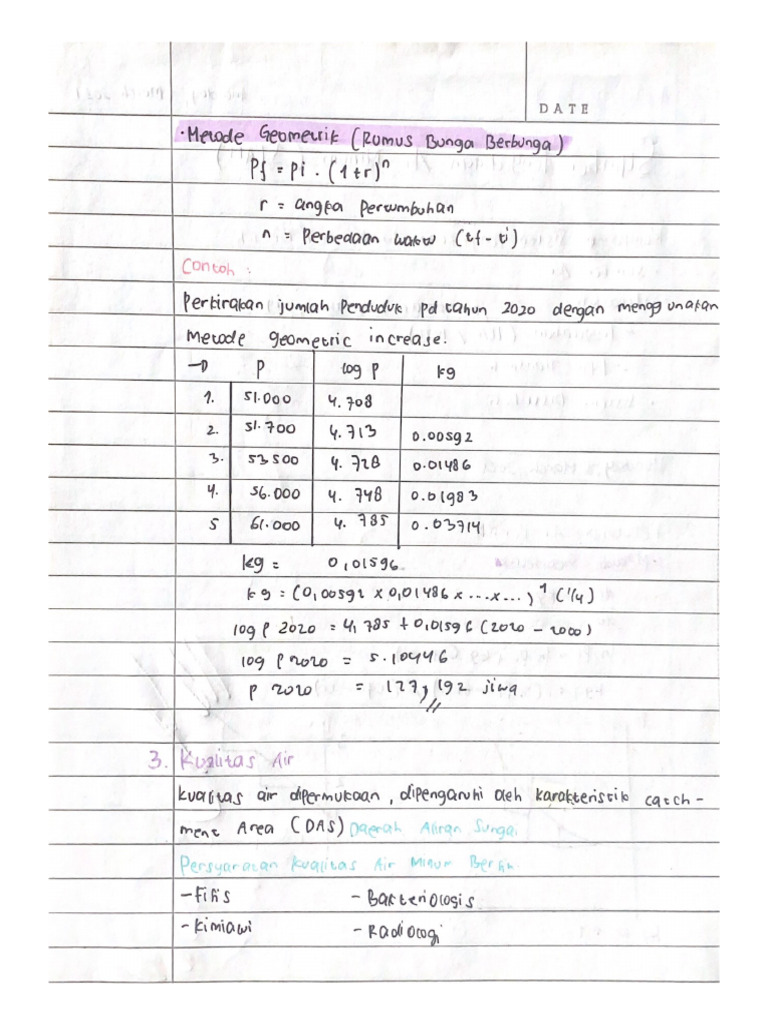 DATE
• Metode Geometrik (Rumus Bunga Berbunga)
Pf = Pi . (1+r)ⁿ
r = angka pertumbuhan
n = Perbedaan waktu (tf - ti)
Contoh :
Perkirakan jumlah Penduduk pd tahun 2020 dengan menggunakan
Metode geometric increase!
→ P log P kg
1. 51.000 4.708
2. 51.700 4.713 0.00592
3. 53500 4.728 0.01486
4. 56.000 4.748 0.01983
5 61.000 4.785 0.03714
kg = 0,01596
kg = (0,00592 x 0,01486 x ... x ...) ^ (1/4)
log P 2020 = 4,785 + 0,01596 (2020 - 2000)
log P 2020 = 5.10446
P 2020 = 127,192 jiwa
3. Kualitas Air
Kualitas air dipermukaan, dipengaruhi oleh karakteristik catch-
ment Area (DAS) Daerah Aliran Sungai
Persyaratan Kualitas Air Minum Bersih
- Fisis - Bakteriologis
- Kimiawi - Radiologi